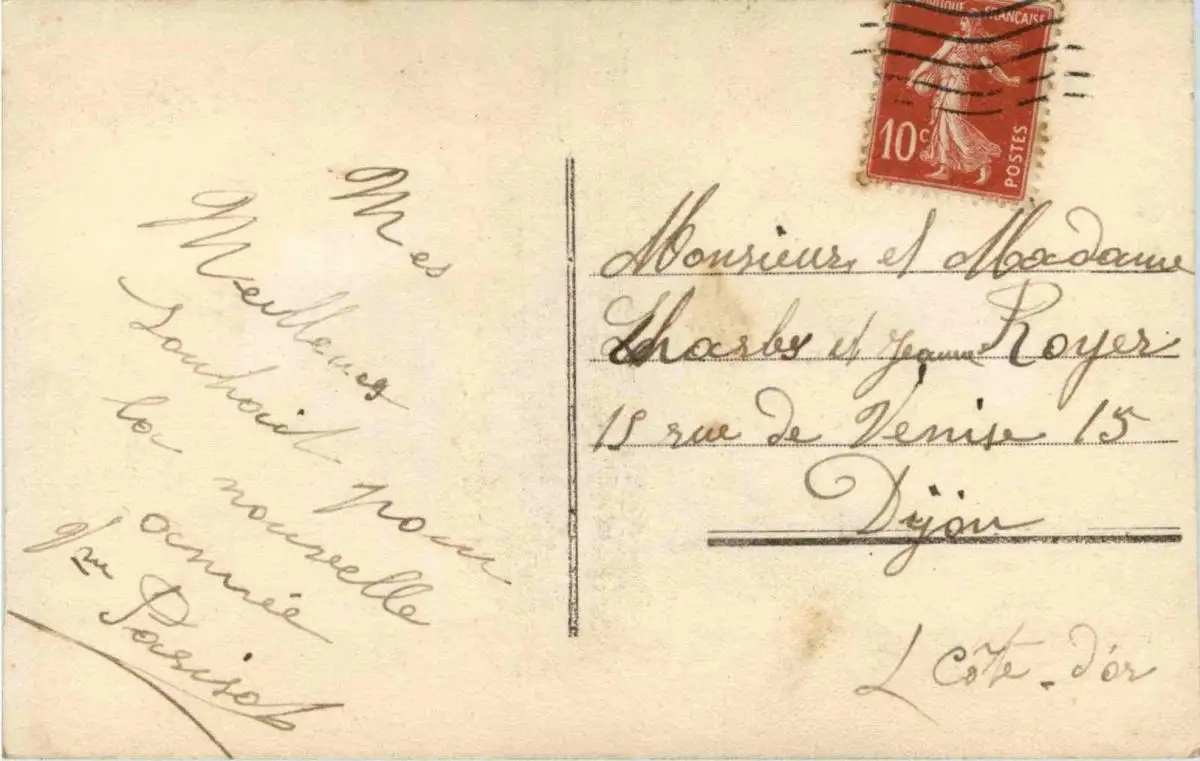 Mes
Meilleures
Souhait pour
la nouvelle
année
Parisot
RÉPUBLIQUE FRANÇAISE
10c
POSTES
Monsieur et Madame
Charles et Jeanne Royer
15 rue de Venise 15
Dijon
Côte-d'or